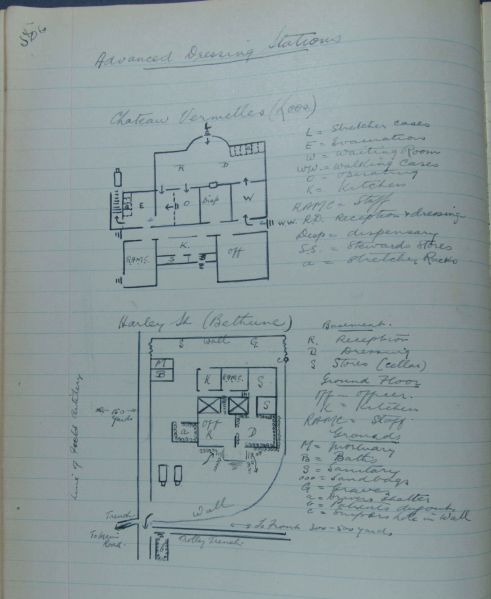 Advanced Dressing Stations
Chateau Vermelles (Loos.)
L = Stretcher cases
E = Evacuation
W = Waiting Room
WW = Walking Cases
O = Operating
K = Kitchen
RAMC = Staff
R.D. Reception & dressing
Disp = dispensary
S.S. = Stewards Stores
a = Stretcher Racks
L
R D
E O Disp W
WW.
RAMC K. Off
S S
Harley St (Bethune)
S Wall G
M
B
K RAMC S
S
Off
R D
a
Line of Field Artillery
150 yards
Wall
Trench
To Main Road.
Trolley Trench
To Front 300-500 yards
Basement.
R. Reception
D Dressing
S Stores (cellar)
Ground Floor
Off - Officer.
K Kitchen
RAMC = Staff
Grounds
M = Mortuary
B = Baths
S = Sanitary
ooo = Sandbags
G = Graves
a = Drivers Shelter
C = Snipers hole in Wall